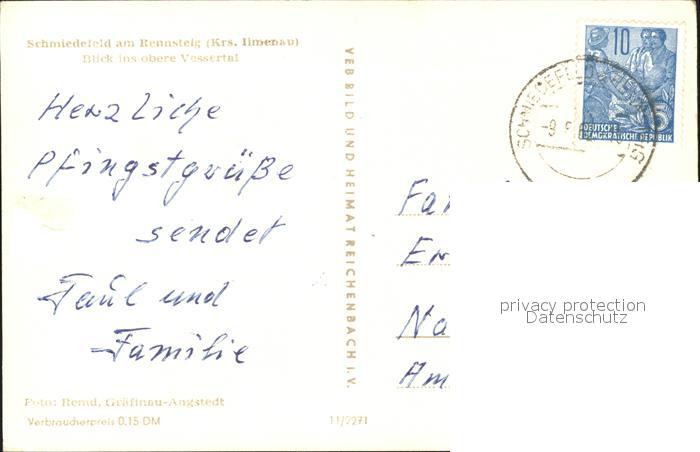 Schmiedefeld am Rennsteig (Krs. Ilmenau)
Blick ins obere Vessertal
Herzliche
Pfingstgrüße
sendet
Familie
und
VEB BILD UND HEIMAT REICHENBACH i. V.
10
DEUTSCHE
DEMOKRATISCHE REPUBLIK
5
Fa
Na
Am
privacy protection
Datenschutz
Foto: Remd, Gräfinau-Angstedt
Verbraucherpreis 0,15 DM
11/2271